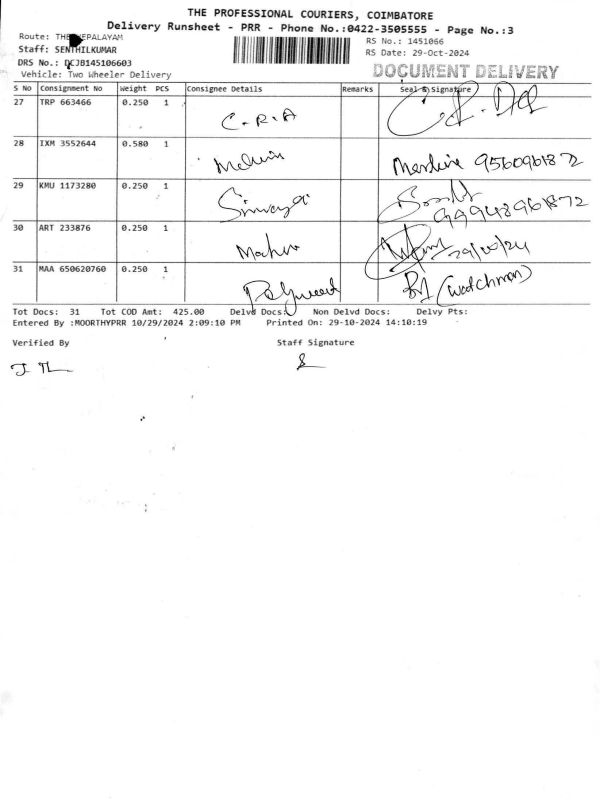 THE PROFESSIONAL COURIERS, COIMBATORE
Delivery Runsheet - PRR - Phone No.:0422-3505555 - Page No.:3
Route: THE EPALAYAM
RS No.: 1451066
Staff: SENTHILKUMAR
RS Date: 29-Oct-2024
DRS No.: DCJB145106603
Vehicle: Two Wheeler Delivery
DOCUMENT DELIVERY
S No Consignment No Weight PCS Consignee Details Remarks Seal & Signature
27 TRP 663466 0.250 1 C.R.A
28 IXM 3552644 0.580 1
29 KMU 1173280 0.250 1
30 ART 233876 0.250 1 29/10/24
31 MAA 650620760 0.250 1 (watchman)
Tot Docs: 31 Tot COD Amt: 425.00 Delvd Docs: Non Delvd Docs: Delvy Pts:
Entered By :MOORTHYPRR 10/29/2024 2:09:10 PM Printed On: 29-10-2024 14:10:19
Verified By Staff Signature